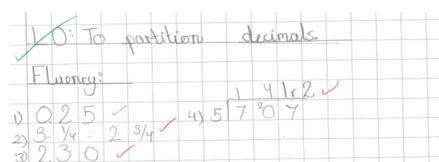 LO: To partition decimals.
Fluency:
1) 025
2) 3 - 1/4 = 2 3/4
3) 230
4) 5 7 ²0 7
1 4 1 r 2